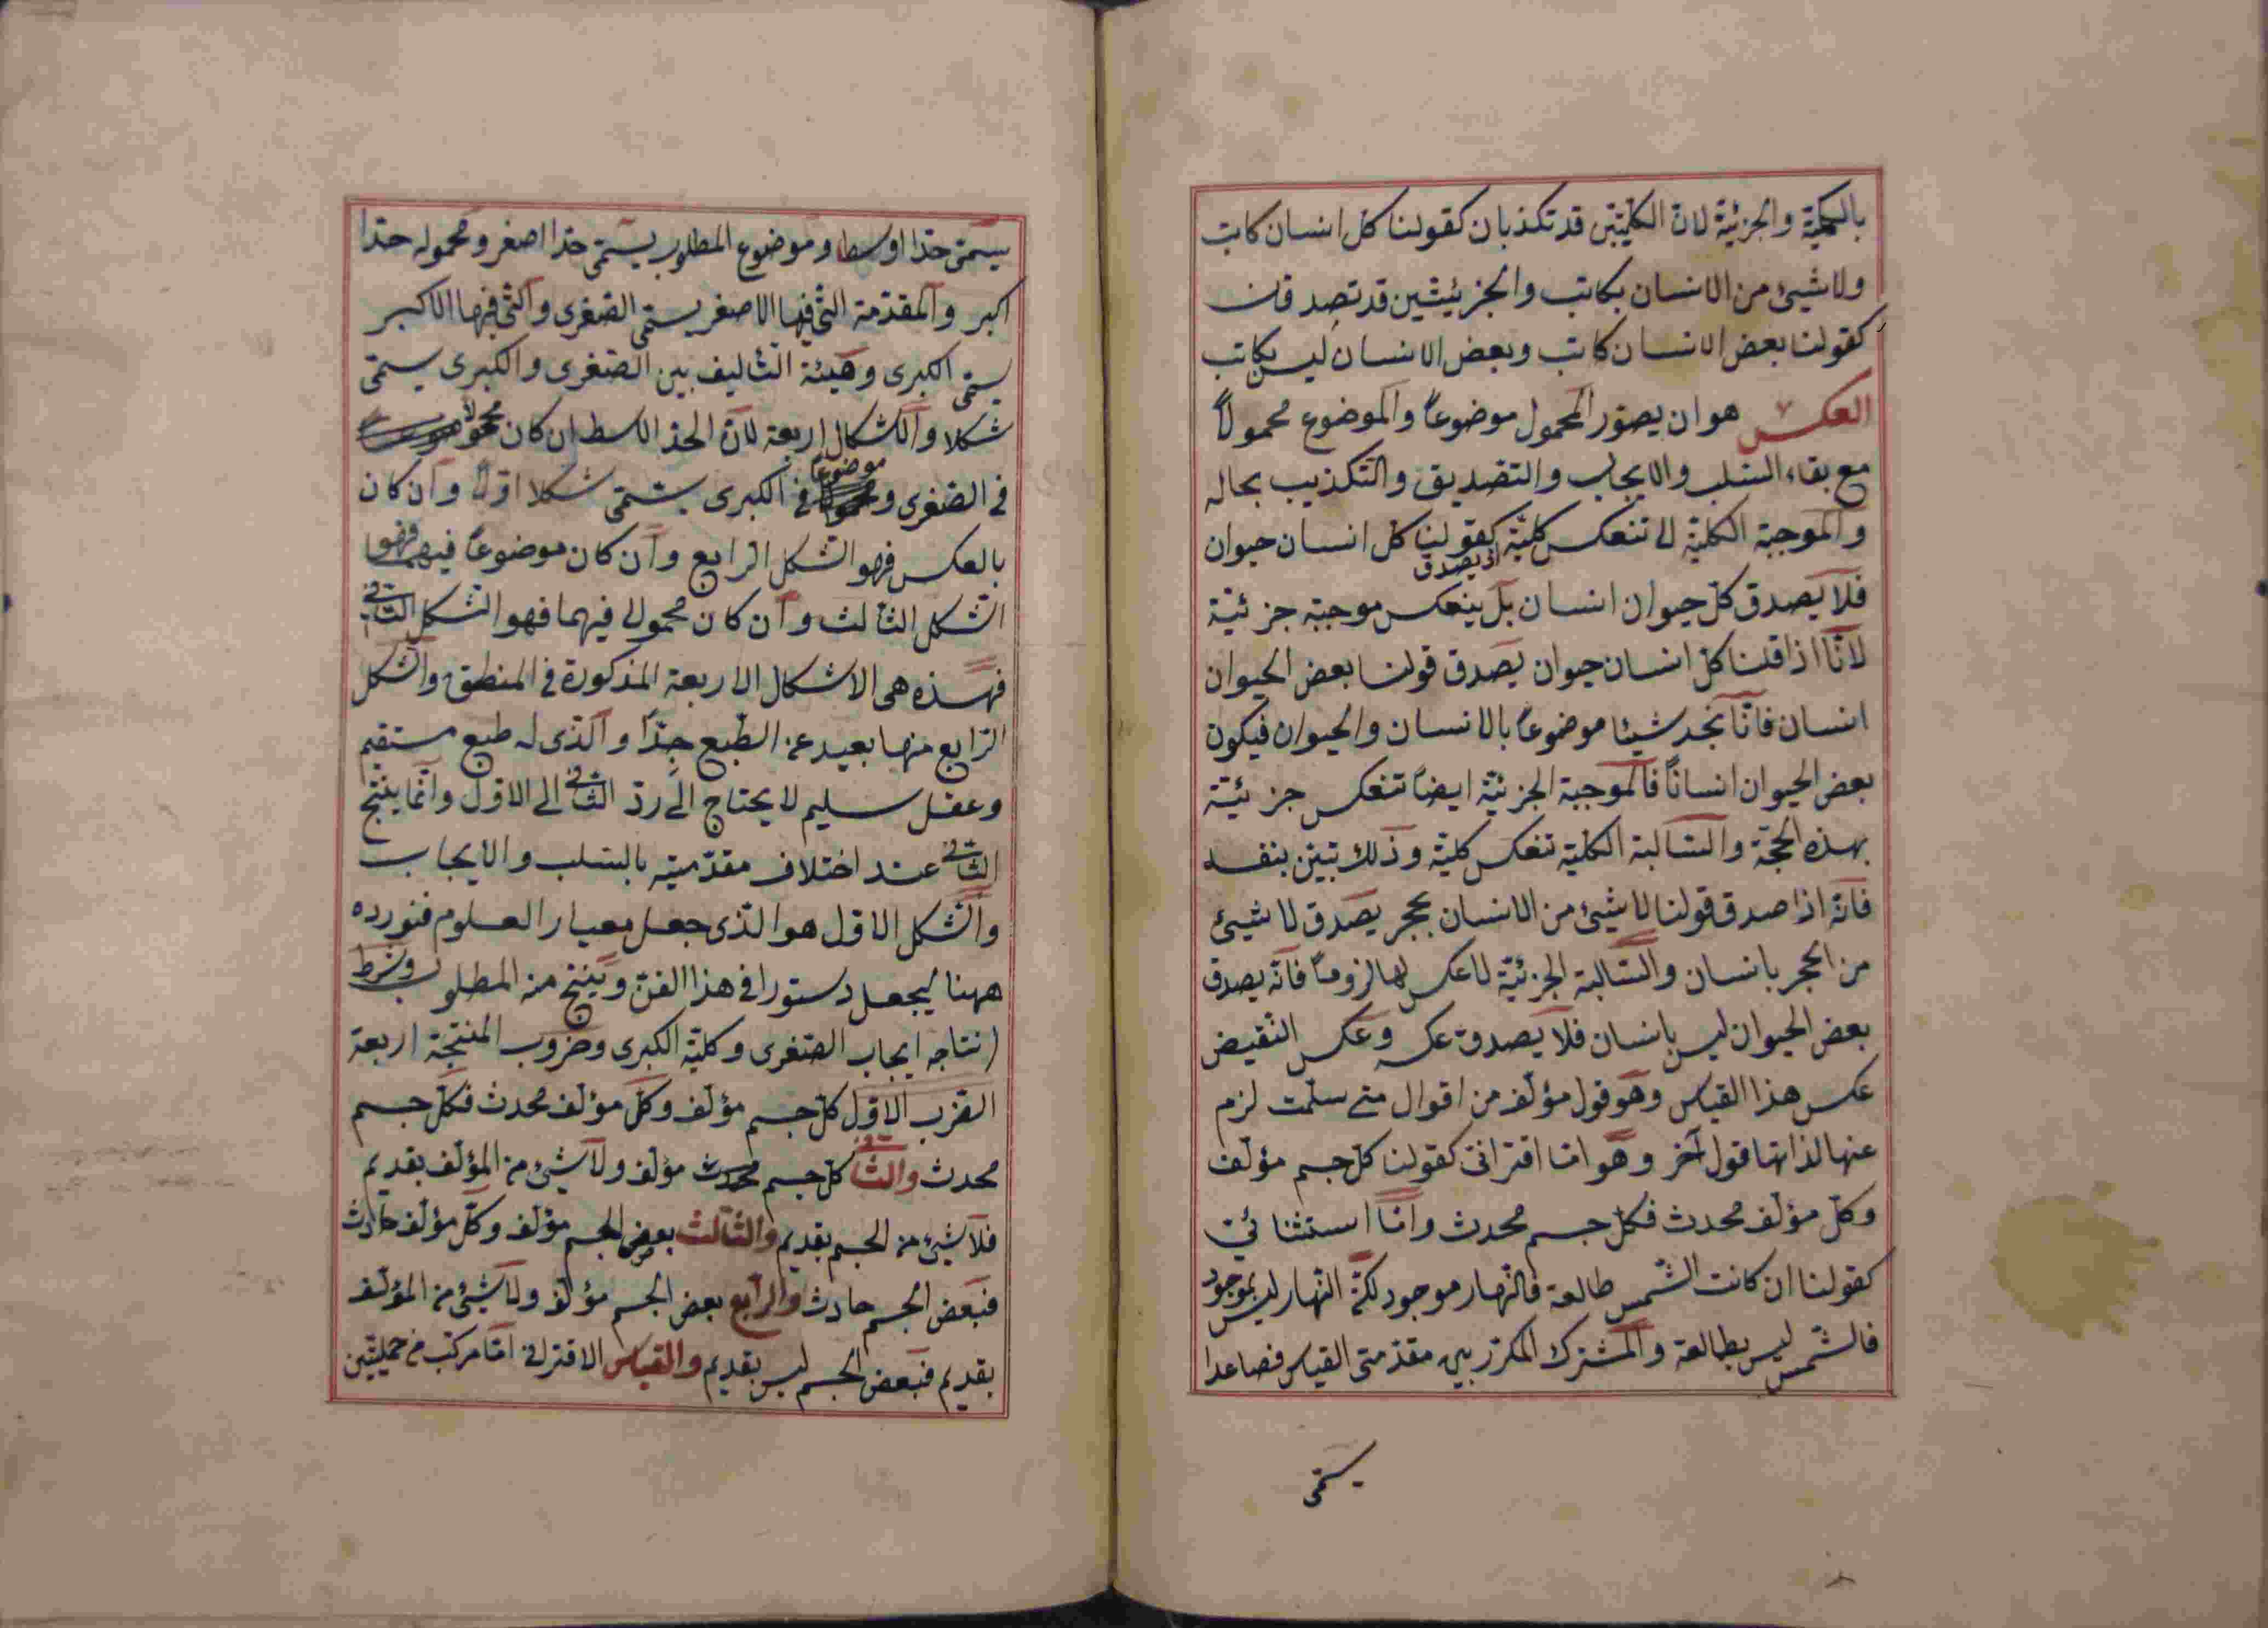 بالكمية والجزئية لان الكليتين قد تكذبان كقولنا كل انسان كاتب
ولا شيئ من الانسان بكاتب والجزئيتين قد تصدقان
كقولنا بعض الانسان كاتب وبعض الانسان ليس بكاتب
العكس هو ان يصور المحمول موضوعاً والموضوع محمولاً
مع بقاء السلب والايجاب والتصديق والتكذيب بحاله
والموجبة الكلية لا تنعكس كلية كقولنا كل انسان حيوان
اذ يصدق
فلا يصدق كل حيوان انسان بل ينعكس موجبة جزئية
لانّا اذا قلنا كل انسان حيوان يصدق قولنا بعض الحيوان
انسان فانّا نجد شيئا موضوعاً بالانسان والحيوان فيكون
بعض الحيوان انساناً فالموجبة الجزئية ايضاً تنعكس جزئية
بهذه الحجّة والسّالبة الكلية تنعكس كلية وذلك تبيّن بنفسه
فانّه اذا صدق قولنا لا شيئ من الانسان بحجر يصدق لا شيئ
من الحجر بانسان والسّالبة الجزئيّة لا عكس لها لزوماً فانّه يصدق
بعض الحيوان ليس بانسان فلا يصدق عكسه وعكس النّقيض
عكس هذا القياس وهو قول مؤلّف من اقوال متى سلّمت لزم
عنها لذاتها قول آخر وهو امّا اقترانىّ كقولنا كل جسم مؤلّف
وكلّ مؤلّف محدث فكلّ جسم محدث وامّا استثنائىّ
كقولنا ان كانت الشّمس طالعة فالنّهار موجود لكنّ النّهار ليس بموجود
فالشّمس ليس بطالعة والمشترك المكرّر بين مقدّمتى القياس فصاعدا
يسمّى
يسمّى حدّا اوسطا وموضوع المطلوب يسمّى حدّا اصغر ومحموله حدّا
اكبر والمقدّمة الّتى فيها الاصغر يسمّى الصّغرى والّتى فيها الاكبر
يسمّى الكبرى وهيئة التّأليف بين الصّغرى والكبرى يسمّى
شكلا والاشكال اربعة لانّ الحدّ الاوسط ان كان محمولاً
فى الصّغرى وموضوعاً فى الكبرى يسمّى شكلا اوّلاً وان كان
بالعكس فهو الشّكل الرّابع وان كان موضوعاً فيهما فهو
الشّكل الثّالث وان كان محمولا فيهما فهو الشّكل الثّانى
فهذه هى الاشكال الاربعة المذكورة فى المنطق والشّكل
الرّابع منها بعيد عن الطّبع جدّاً والّذى له طبع مستقيم
وعقل سليم لا يحتاج الى ردّ الثّانى الى الاوّل وانّما ينتج
الثّانى عند اختلاف مقدّمتيه بالسّلب والايجاب
والشّكل الاوّل هو الّذى جعل معيار العلوم فنورده
ههنا ليجعل دستورا فى هذا الفنّ وينتج منه المطلوب وشرط
انتاجه ايجاب الصّغرى وكليّة الكبرى وضروب المنتجة اربعة
الضّرب الاوّل كلّ جسم مؤلّف وكلّ مؤلّف محدث فكلّ جسم
محدث والثّانى كلّ جسم محدث مؤلّف ولا شيئ من المؤلّف بقديم
فلا شيئ من الجسم بقديم والثّالث بعض الجسم مؤلّف وكلّ مؤلّف حادث
فبعض الجسم حادث والرّابع بعض الجسم مؤلّف ولا شيئ من المؤلّف
بقديم فبعض الجسم ليس بقديم والقياس الاقترانى امّا مركّب من حمليّتين